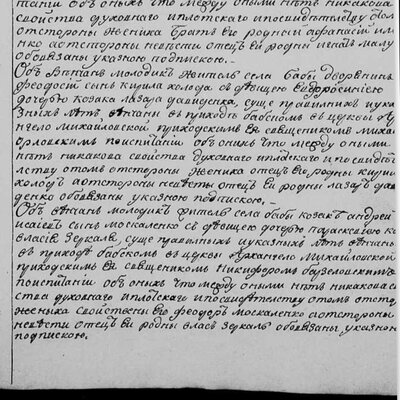 тани объ оныхъ что между оными нѣтъ никакова
свойства духовнаго и плотскаго и по свидѣтелству о том
отстороны женика братъ его родный афанасий
а отстороны невести отецъ ей родны
обовязаны указною подпискою.
Объ Вѣнчанъ молодикъ жителъ села бабы дворенинъ
феодосій сынъ кирила холода з девецею евдокиею
дочерью козака лазара давиденка, суще правилныхъ и ука
зныхъ лѣтъ венчаны въ приходѣ бабскомъ въ церквы Ар
хангело михаиловской приходскимъ ея священикомъ миха
орловскимъ поиспитаніи объ онихъ что между оными
нѣтъ никакова свойства духовнаго и плотскаго и по свидѣте
лству о томъ отстороны женика отецъ его родны кирил
холодъ а отстороны невести отецъ ей родны лазаръ дави
денко обовязаны указною подпискою.
Объ венчанъ молодикъ жителъ села бабы козакъ андрей
исаіевъ сынъ москаленко съ девецею дочерю параскевиею ко
власия зеркаля, суще правилныхъ и указныхъ лѣтъ венчаны
въ приходѣ бабскомъ въ церквы Архангело Михаиловской
приходскимъ ея священикомъ Никифоромъ
поиспитаніи объ оныхъ что между оными нѣтъ никакова сво
ства духовнаго и плотскаго и по свидѣтелству о томъ отсто
женика свойствены его феодоръ москаленко а отстороны
невести отецъ ей родны власъ зеркаль обовязаны указною
подпискою.